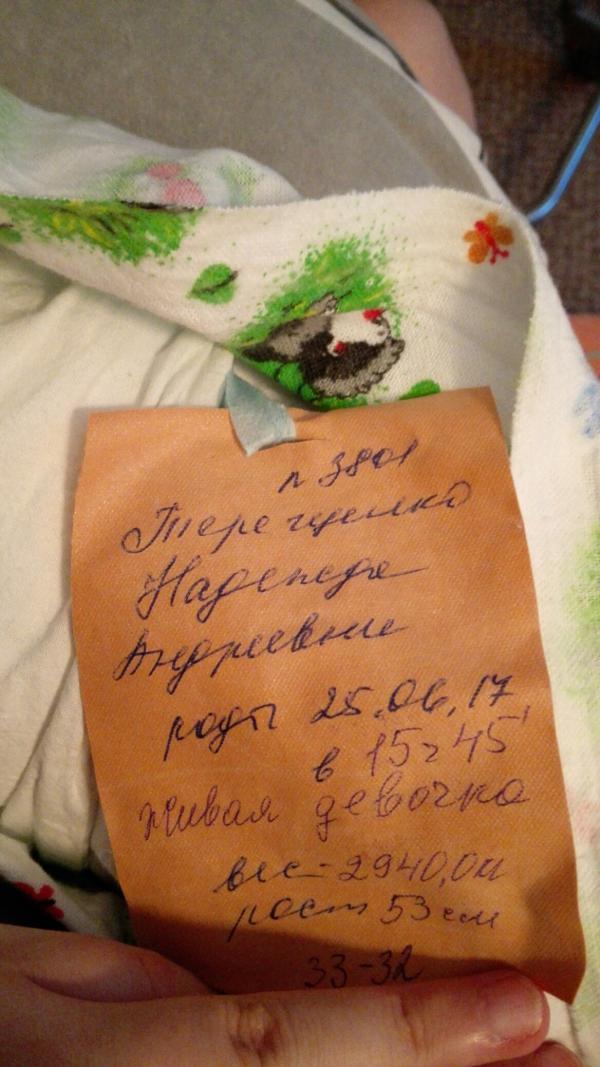 n 3801
Терещенко
Надежда
Андреевна
роды 25.06.17
в 15 ч 45'
живая девочка
вес - 2940,0
рост 53 см
33-32